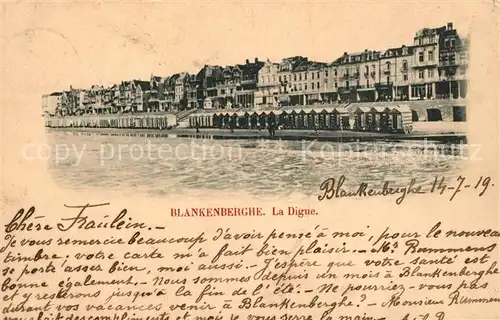 BLANKENBERGHE. La Digue.
Blankenberghe 14-7-19
Chère Fraülein. -
Je vous remercie beaucoup d'avoir pensé à moi, pour le nouveau
timbre, votre carte m'a fait bien plaisir. - Mr Rummens
se porte asser bien, moi aussi. J'espère que votre santé est
bonne également. - Nous sommes depuis un mois à Blankenberghe
et y resterons jusqu'à la fin de l'été. - Ne pourriez-vous pas
durant vos vacances venir à Blankenberghe? - Monsieur Rummens
vous fait des compliments et moi je vous serre la main